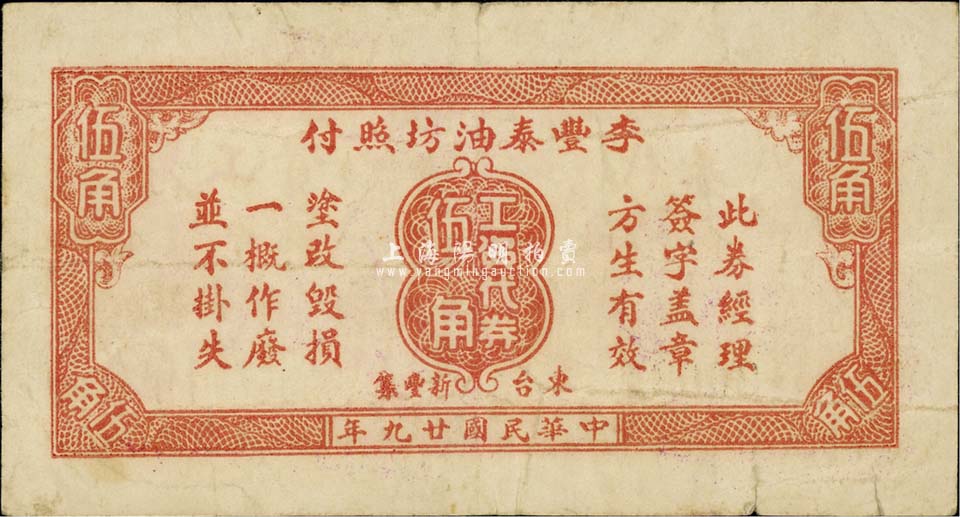 李豐泰油坊照付
伍角
伍角
此券經理
簽字盖章
方生有效
伍角
塗改毀損
一概作廢
並不掛失
東台新豐集
伍角
伍角
中華民國廿九年
上海陽明拍賣
www.yangmingauction.com